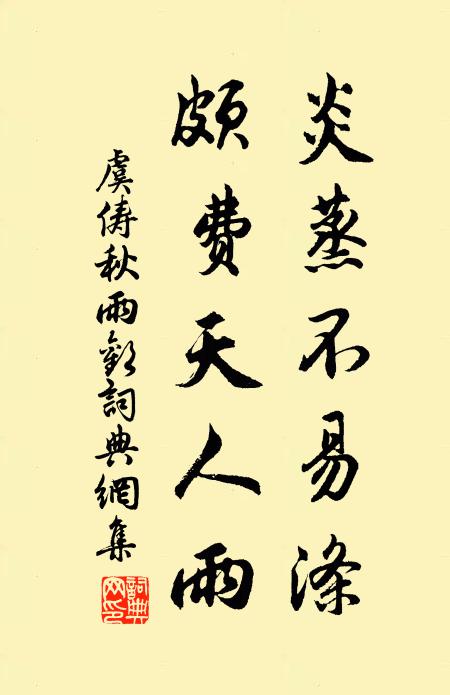 炎蒸不易滌
頗費天人雨
虞儔秋雨歎詞典網集
詞典
网印